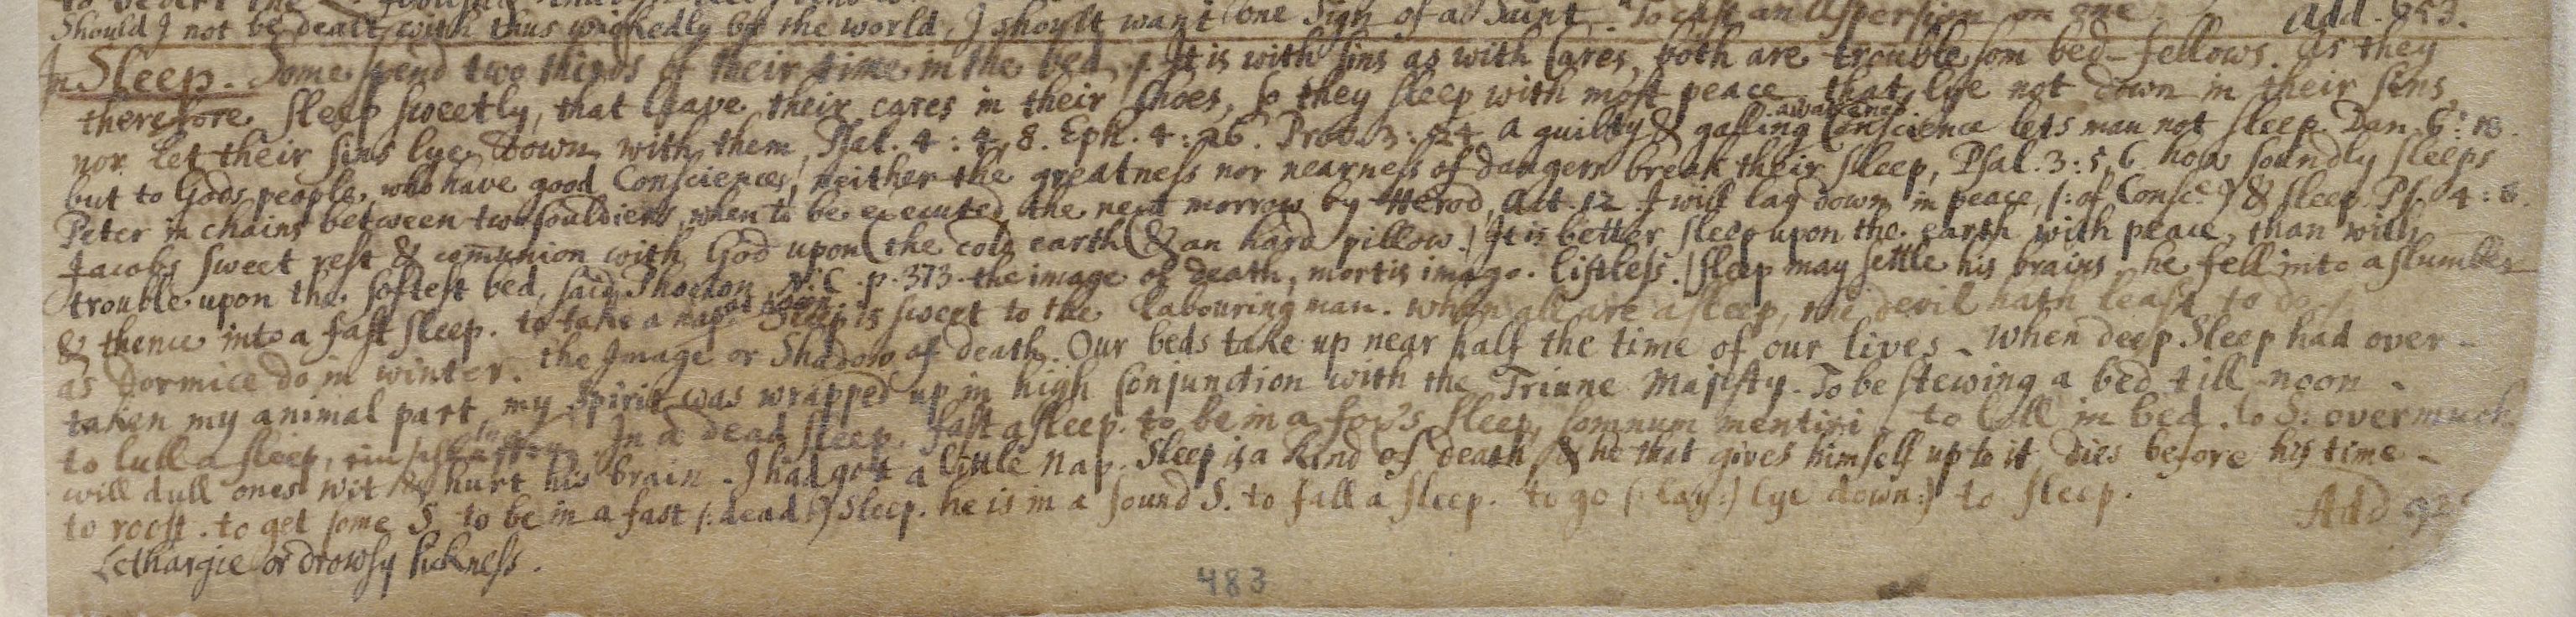 Should I not be dealt with thus wickedly by the world, I should want one Sign of a Saint. To cast an Aspersion on one Add. 653.
In Sleep. Some spend two thirds of their time in the bed. It is with sins as with Cares, both are troublesom bed-fellows. As they
therefore sleep sweetly, that leave their cares in their shoes, so they sleep with most peace that lye not down in their sins
nor let their sins lye down with them, Psal. 4: 4, 8. Eph. 4: 26. Prov. 3: 24. A guilty & galling awakened Conscience lets man not sleep. Dan. 6: 18.
but to Gods people, who have good Consciences, neither the greatness nor nearness of dangers break their sleep, Psal. 3: 5, 6. how soundly sleeps
Peter in chains between two souldiers, when to be executed the next morrow by Herod, Act. 12. I will lay down in peace, (: of Consc.ce) & sleep. Ps. 4: 8.
Jacobs sweet rest & comunion with God upon the cold earth & an hard pillow. It is better sleep upon the earth with peace, than with
trouble upon the softest bed, said Phocion, N. C. p. 373. the image of death, mortis imago. listless. sleep may settle his brains. he fell into a slumber
& thence into a fast sleep. to take a nap at noon. Sleep is sweet to the labouring man. when all are asleep, the devil hath least to do.
as dormice do in winter. the Image or Shadow of death. Our beds take up near half the time of our lives - When deep Sleep had over-
taken my animal part, my Spirit was wrapped up in high Conjunction with the Triune Majesty. To be stewing a bed till noon -
to lull a sleep, In a dead sleep. fast asleep. to be in a fox's sleep, somnum mentiri. to loll in bed. to S. overmuch
will dull ones wit & hurt his brain - I had got a little Nap. Sleep is a Kind of death, & he that gives himself up to it dies before his time -
to roost. to get some S. to be in a fast (: dead :) Sleep. he is in a sound S. to fall a sleep. to go (: lay :) lye down :) to sleep.
Lethargie or drowsy sickness. Add
483